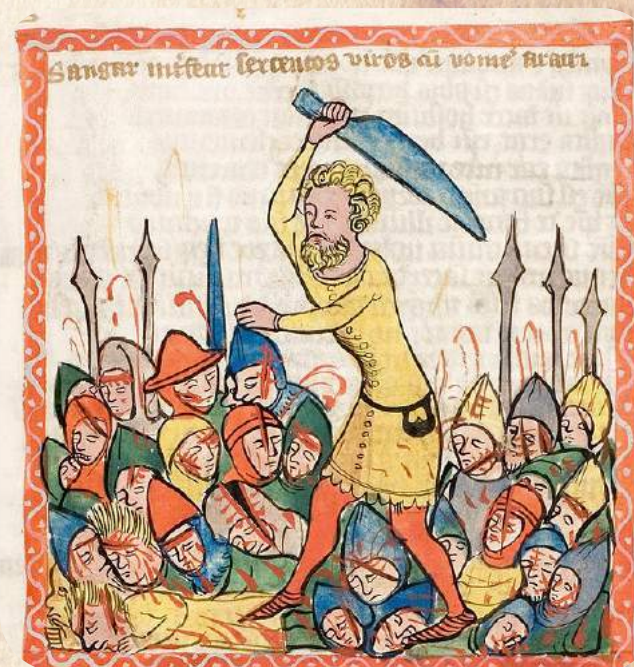 Sangar int̄fecit sexcentos viros cū vome᷑ aratri